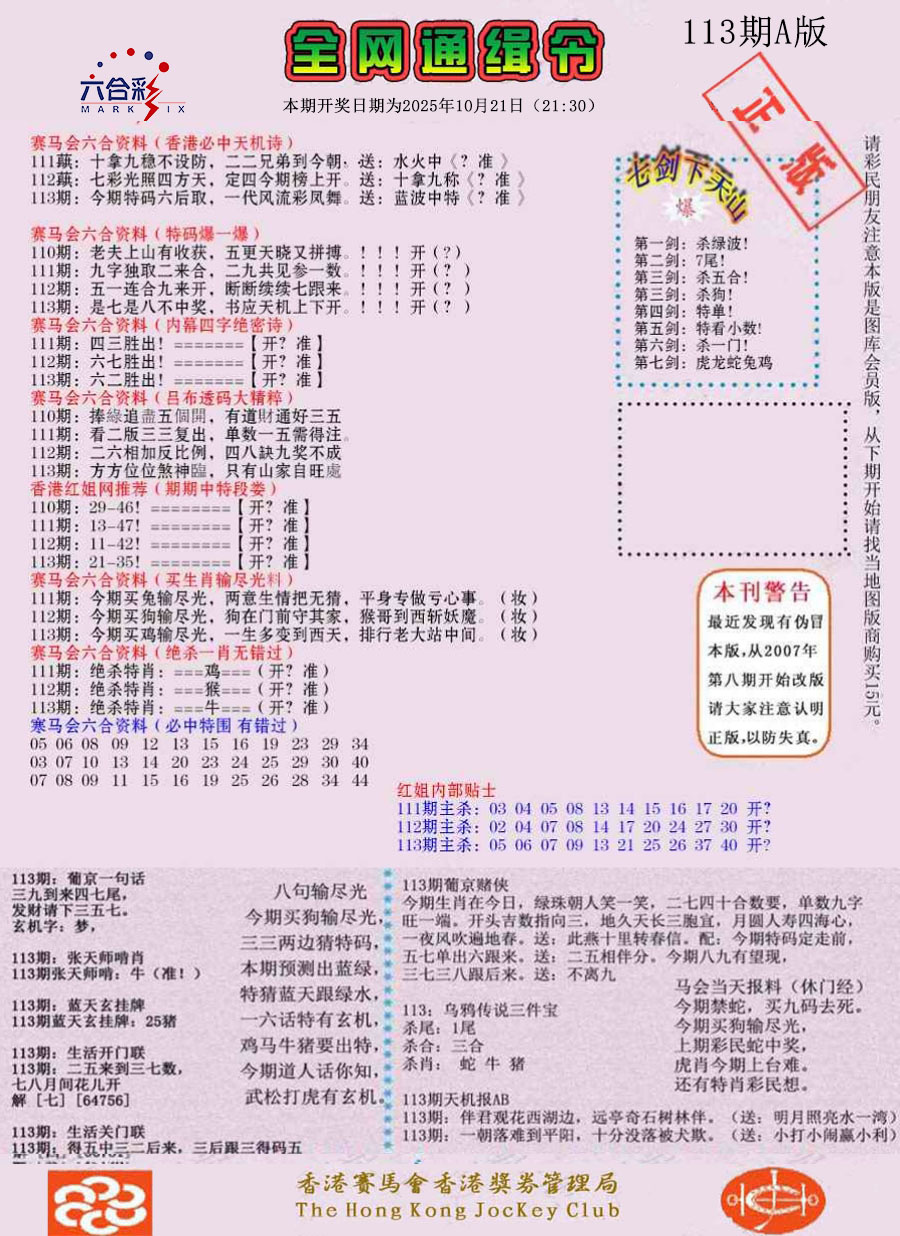 113期A版
全网通缉令
六合彩
MARK SIX
本期开奖日期为2025年10月21日（21:30）
正版
赛马会六合资料（香港必中天机诗）
111蘓：十拿九稳不设防，二二兄弟到今朝，送：水火中《？准 》
112蘓：七彩光照四方天，定四今期榜上开。送：十拿九称《？准 》
113期：今期特码六后取，一代风流彩凤舞。送：蓝波中特《？准 》
赛马会六合资料（特码爆一爆）
110期：老夫上山有收获，五更天晓又拼搏。！！！开（?）
111期：九字独取二来合，二九共见参一数。！！！开（? ）
112期：五一连合九来开，断断续续七跟来。！！！开（? ）
113期：是七是八不中奖，书应天机上下开。！！！开（? ）
赛马会六合资料（内幕四字绝密诗）
111期：四三胜出！=======【开？准】
112期：六七胜出！=======【开？准】
113期：六二胜出！=======【开？准】
赛马会六合资料（吕布透码大精粹）
110期：捧綠追盡五個開，有道財通好三五
111期：看二版三三复出，单数一五需得注。
112期：二六相加反比例，四八缺九奖不成
113期：方方位位煞神臨，只有山家自旺處
香港红姐网推荐（期期中特段娄）
110期：29-46！========【开？准】
111期：13-47！========【开？准】
112期：11-42！========【开？准】
113期：21-35！========【开？准】
赛马会六合资料（买生肖输尽光料）
111期：今期买兔输尽光，两意生情把无猜，平身专做亏心事。（妆）
112期：今期买狗输尽光，狗在门前守其家，猴哥到西斩妖魔。（妆）
113期：今期买鸡输尽光，一生多变到西天，排行老大站中间。（妆）
赛马会六合资料（绝杀一肖无错过）
111期：绝杀特肖：===鸡===（开？准）
112期：绝杀特肖：===猴===（开？准）
113期：绝杀特肖：===牛===（开？准）
寒马会六合资料（必中特围 有错过）
05 06 08 09 12 13 15 16 19 23 29 34
03 07 10 13 14 20 23 24 25 29 30 40
07 08 09 11 15 16 19 25 26 28 34 44
七剑下天山
爆
第一剑：杀绿波！
第二剑：7尾！
第三剑：杀五合！
第三剑：杀狗！
第四剑：特单！
第五剑：特看小数！
第六剑：杀一门！
第七剑：虎龙蛇兔鸡
请彩民朋友注意本版是图库会员版，从下期开始请找当地图版商购买15元。
本刊警告
最近发现有伪冒
本版,从2007年
第八期开始改版
请大家注意认明
正版,以防失真。
红姐内部贴士
111期主杀：03 04 05 08 13 14 15 16 17 20 开？
112期主杀：02 04 07 08 14 17 20 24 27 30 开？
113期主杀：05 06 07 09 13 21 25 26 37 40 开？
113期：葡京一句话
三九到来四七尾，
发财请下三五七。
玄机字：梦，
113期：张天师啃肖
113期张天师啃：牛（准！）
113期：蓝天玄挂牌
113期蓝天玄挂牌：25猪
113期：生活开门联
113期：二五来到三七数，
七八月间花儿开
解［七］［64756］
113期：生活关门联
113期：得五中三二后来，三后跟三得码五
八句输尽光
今期买狗输尽光，
三三两边猜特码，
本期预测出蓝绿，
特猜蓝天跟绿水，
一六话特有玄机，
鸡马牛猪要出特，
今期道人话你知，
武松打虎有玄机。
113期葡京赌侠
今期生肖在今日，绿珠朝人笑一笑，二七四十合数要，单数九字
旺一端。开头吉数指向三，地久天长三胞宜，月圆人寿四海心，
一夜风吹遍地春。送：此燕十里转春信。配：今期特码定走前，
五七单出六跟来。送：二五相伴分。今期八九有望现，
三七三八跟后来。送：不离九
113：乌鸦传说三件宝
杀尾：1尾
杀合：三合
杀肖： 蛇 牛 猪
马会当天报料（休门经）
今期禁蛇，买九码去死。
今期买狗输尽光，
上期彩民蛇中奖，
虎肖今期上台难。
还有特肖彩民想。
113期天机报AB
113期：伴君观花西湖边，远亭奇石树林伴。（送：明月照亮水一湾）
113期：一朝落难到平阳，十分没落被犬欺。（送：小打小闹赢小利）
香港賽馬會香港獎券管理局
The Hong Kong JocKey Club